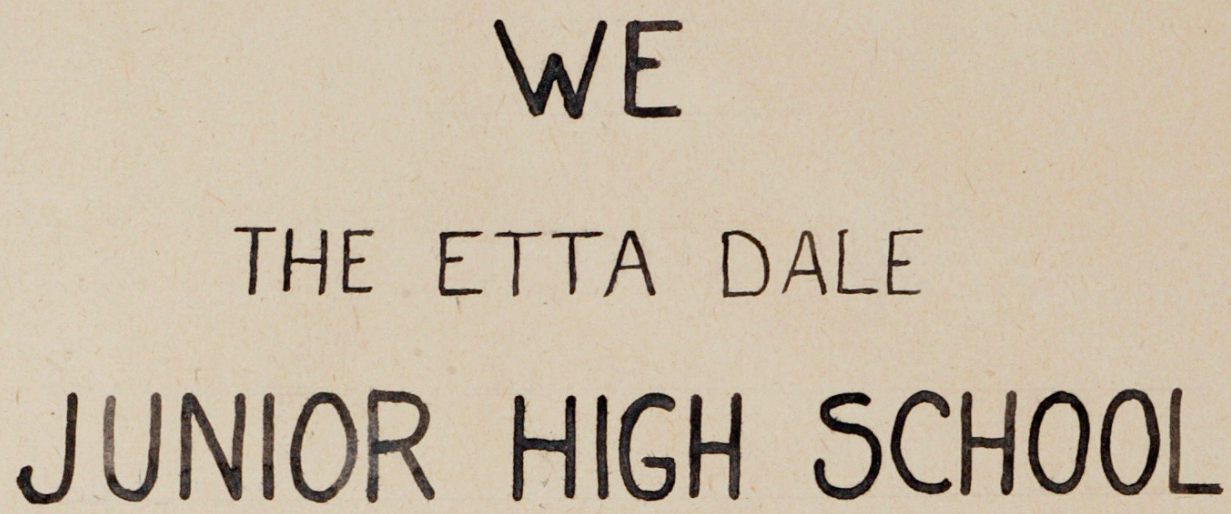 WE
THE ETTA DALE
JUNIOR HIGH SCHOOL